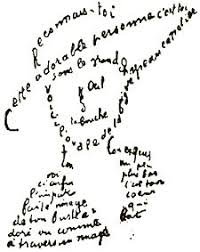 Reconnais-toi
Cette adorable personne c'est toi
sous le grand chapeau canotier
Œil
Nez
la bouche
Voici l'ovale de ta figure
Ton cou exquis
Voi
ci enfin
l'impar
faite image
de ton buste a
doré vu comme
à travers un nuage
un peu
plus bas
c'est ton
coeur
qui
bat